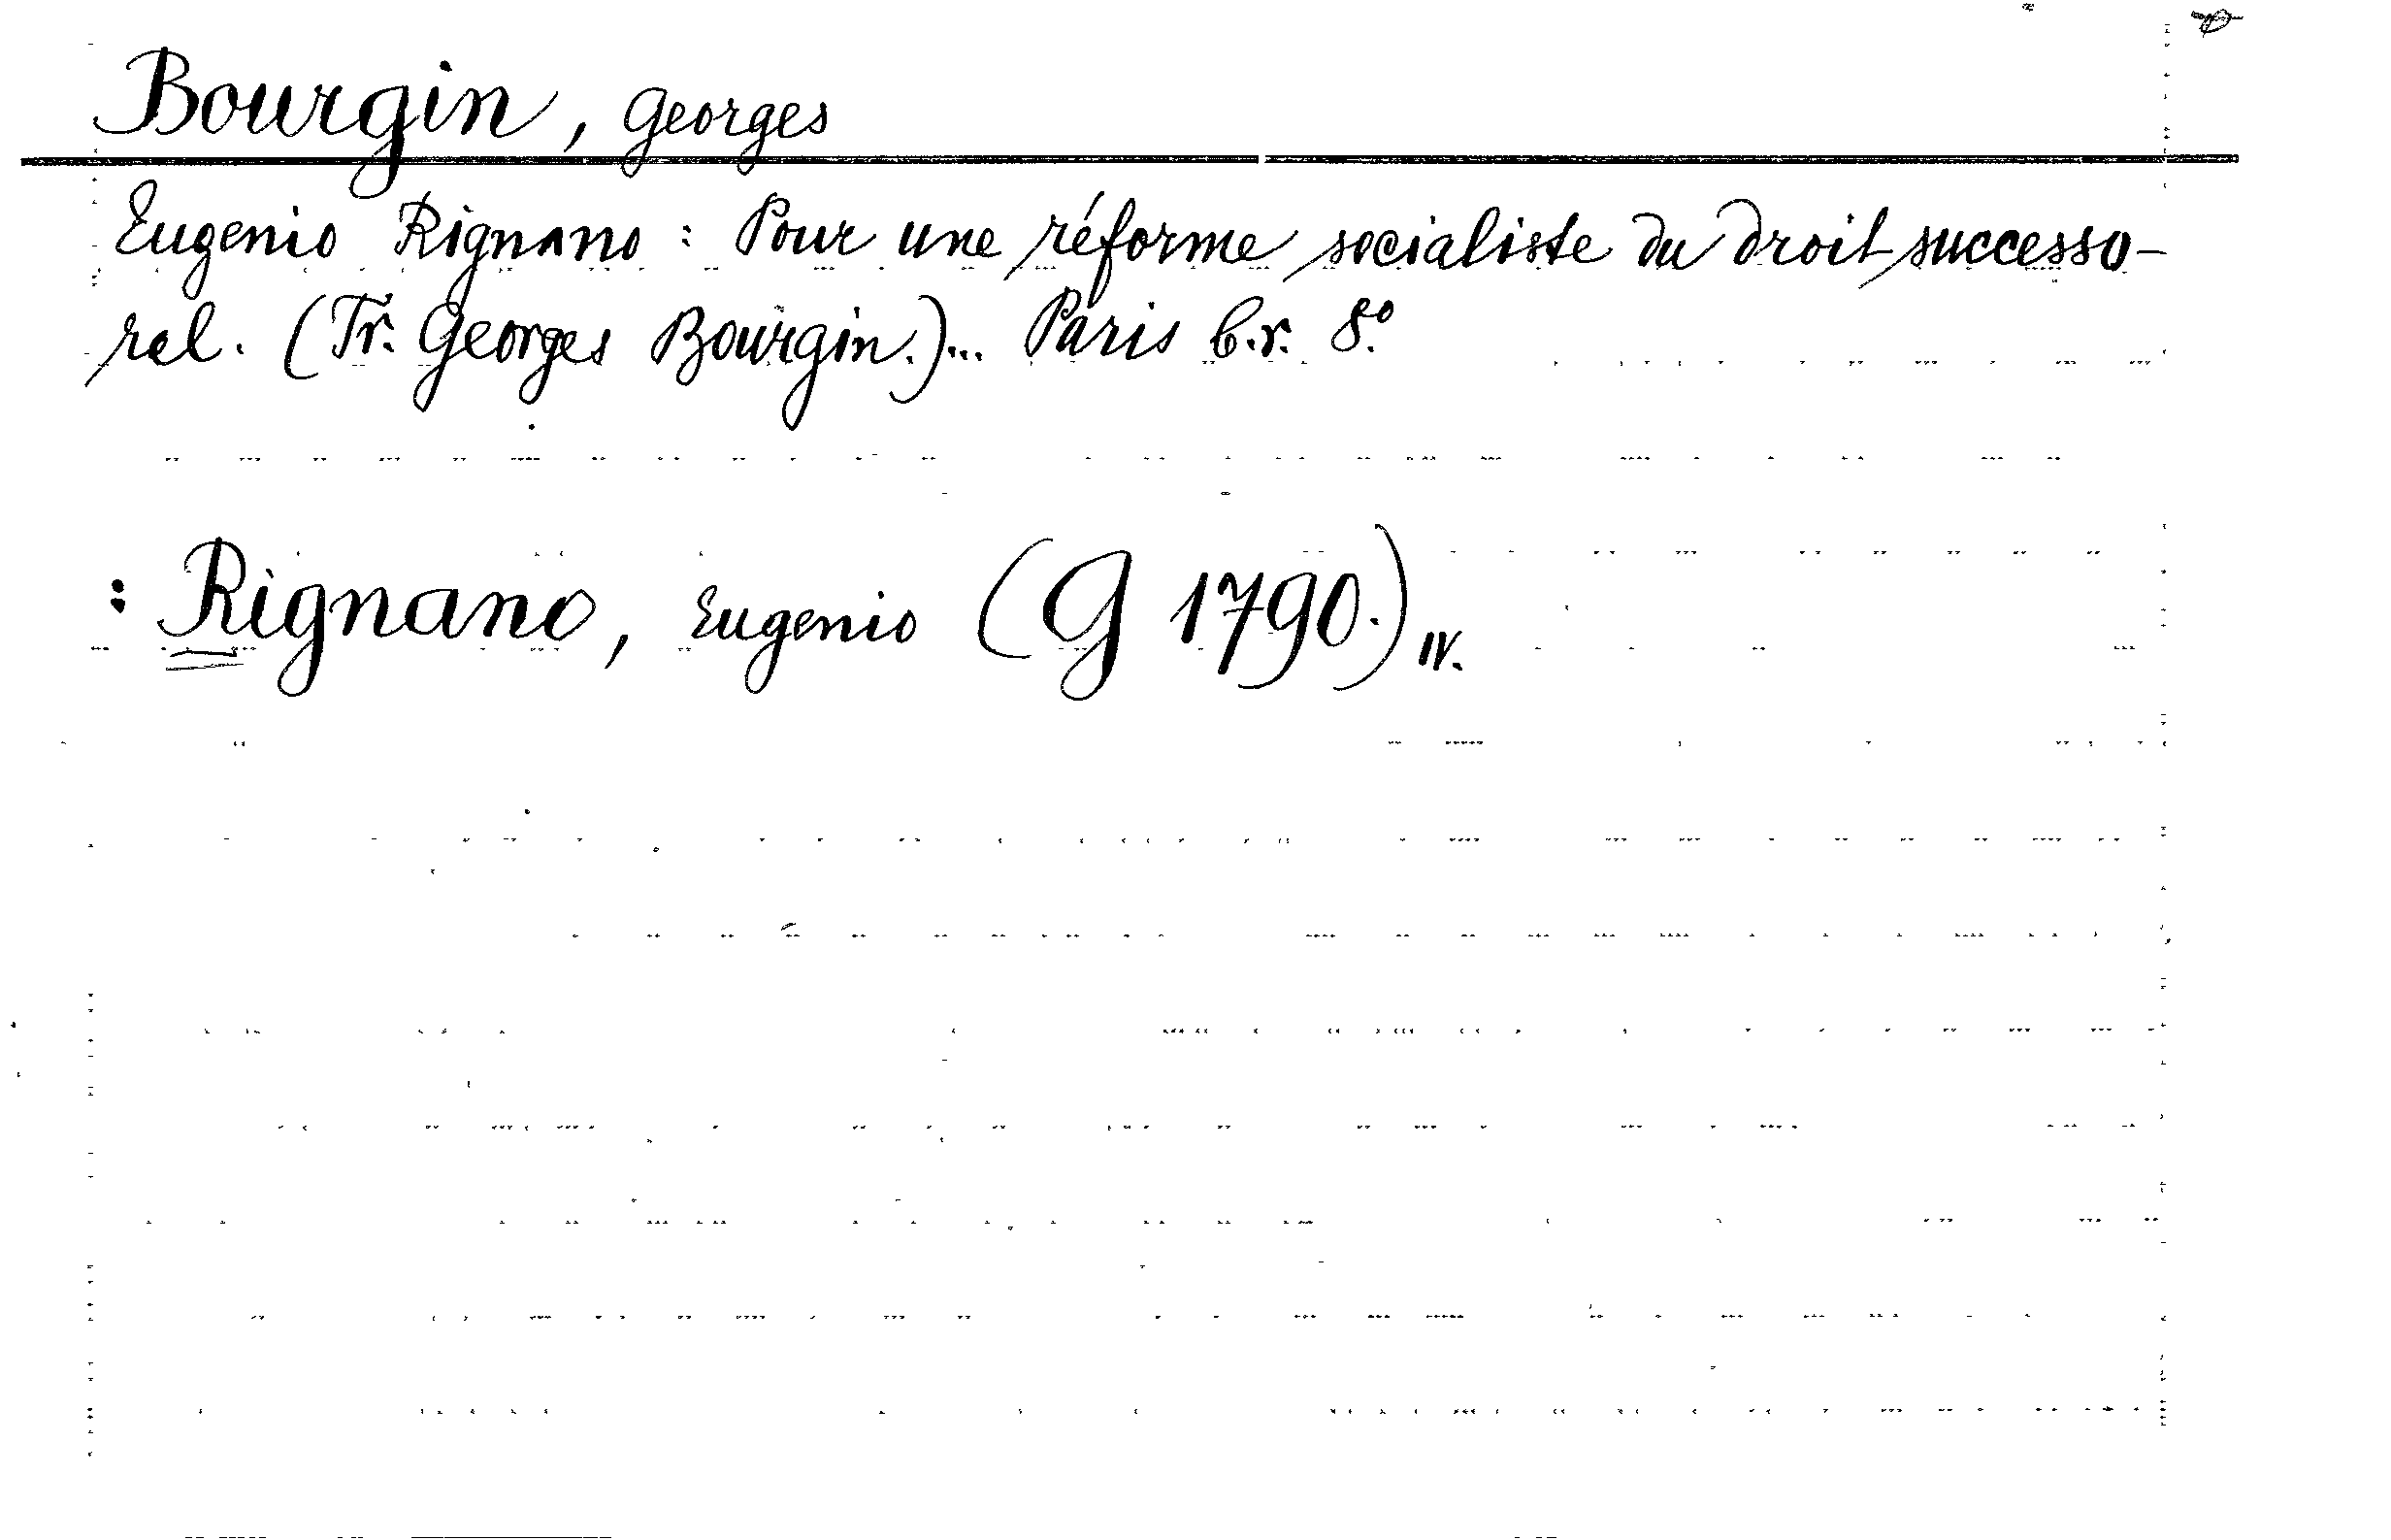 Bourgin, Georges
Eugenio Rignano: Pour une réforme socialiste du droit successo-
ral. (Tr. Georges Bourgin.)... Paris é.n. 8°
: Rignano, Eugenio (G 1790.) IV.